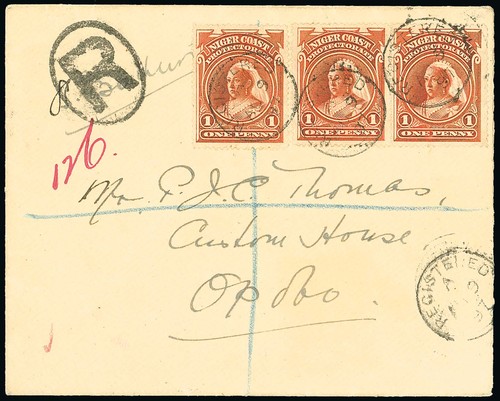 R
NIGER COAST PROTECTORATE
1 ONE PENNY 1
NIGER COAST PROTECTORATE
1 ONE PENNY 1
NIGER COAST PROTECTORATE
1 ONE PENNY 1
126.
Mr. P. J. C. Thomas,
Custom House
Opobo.
REGISTERED